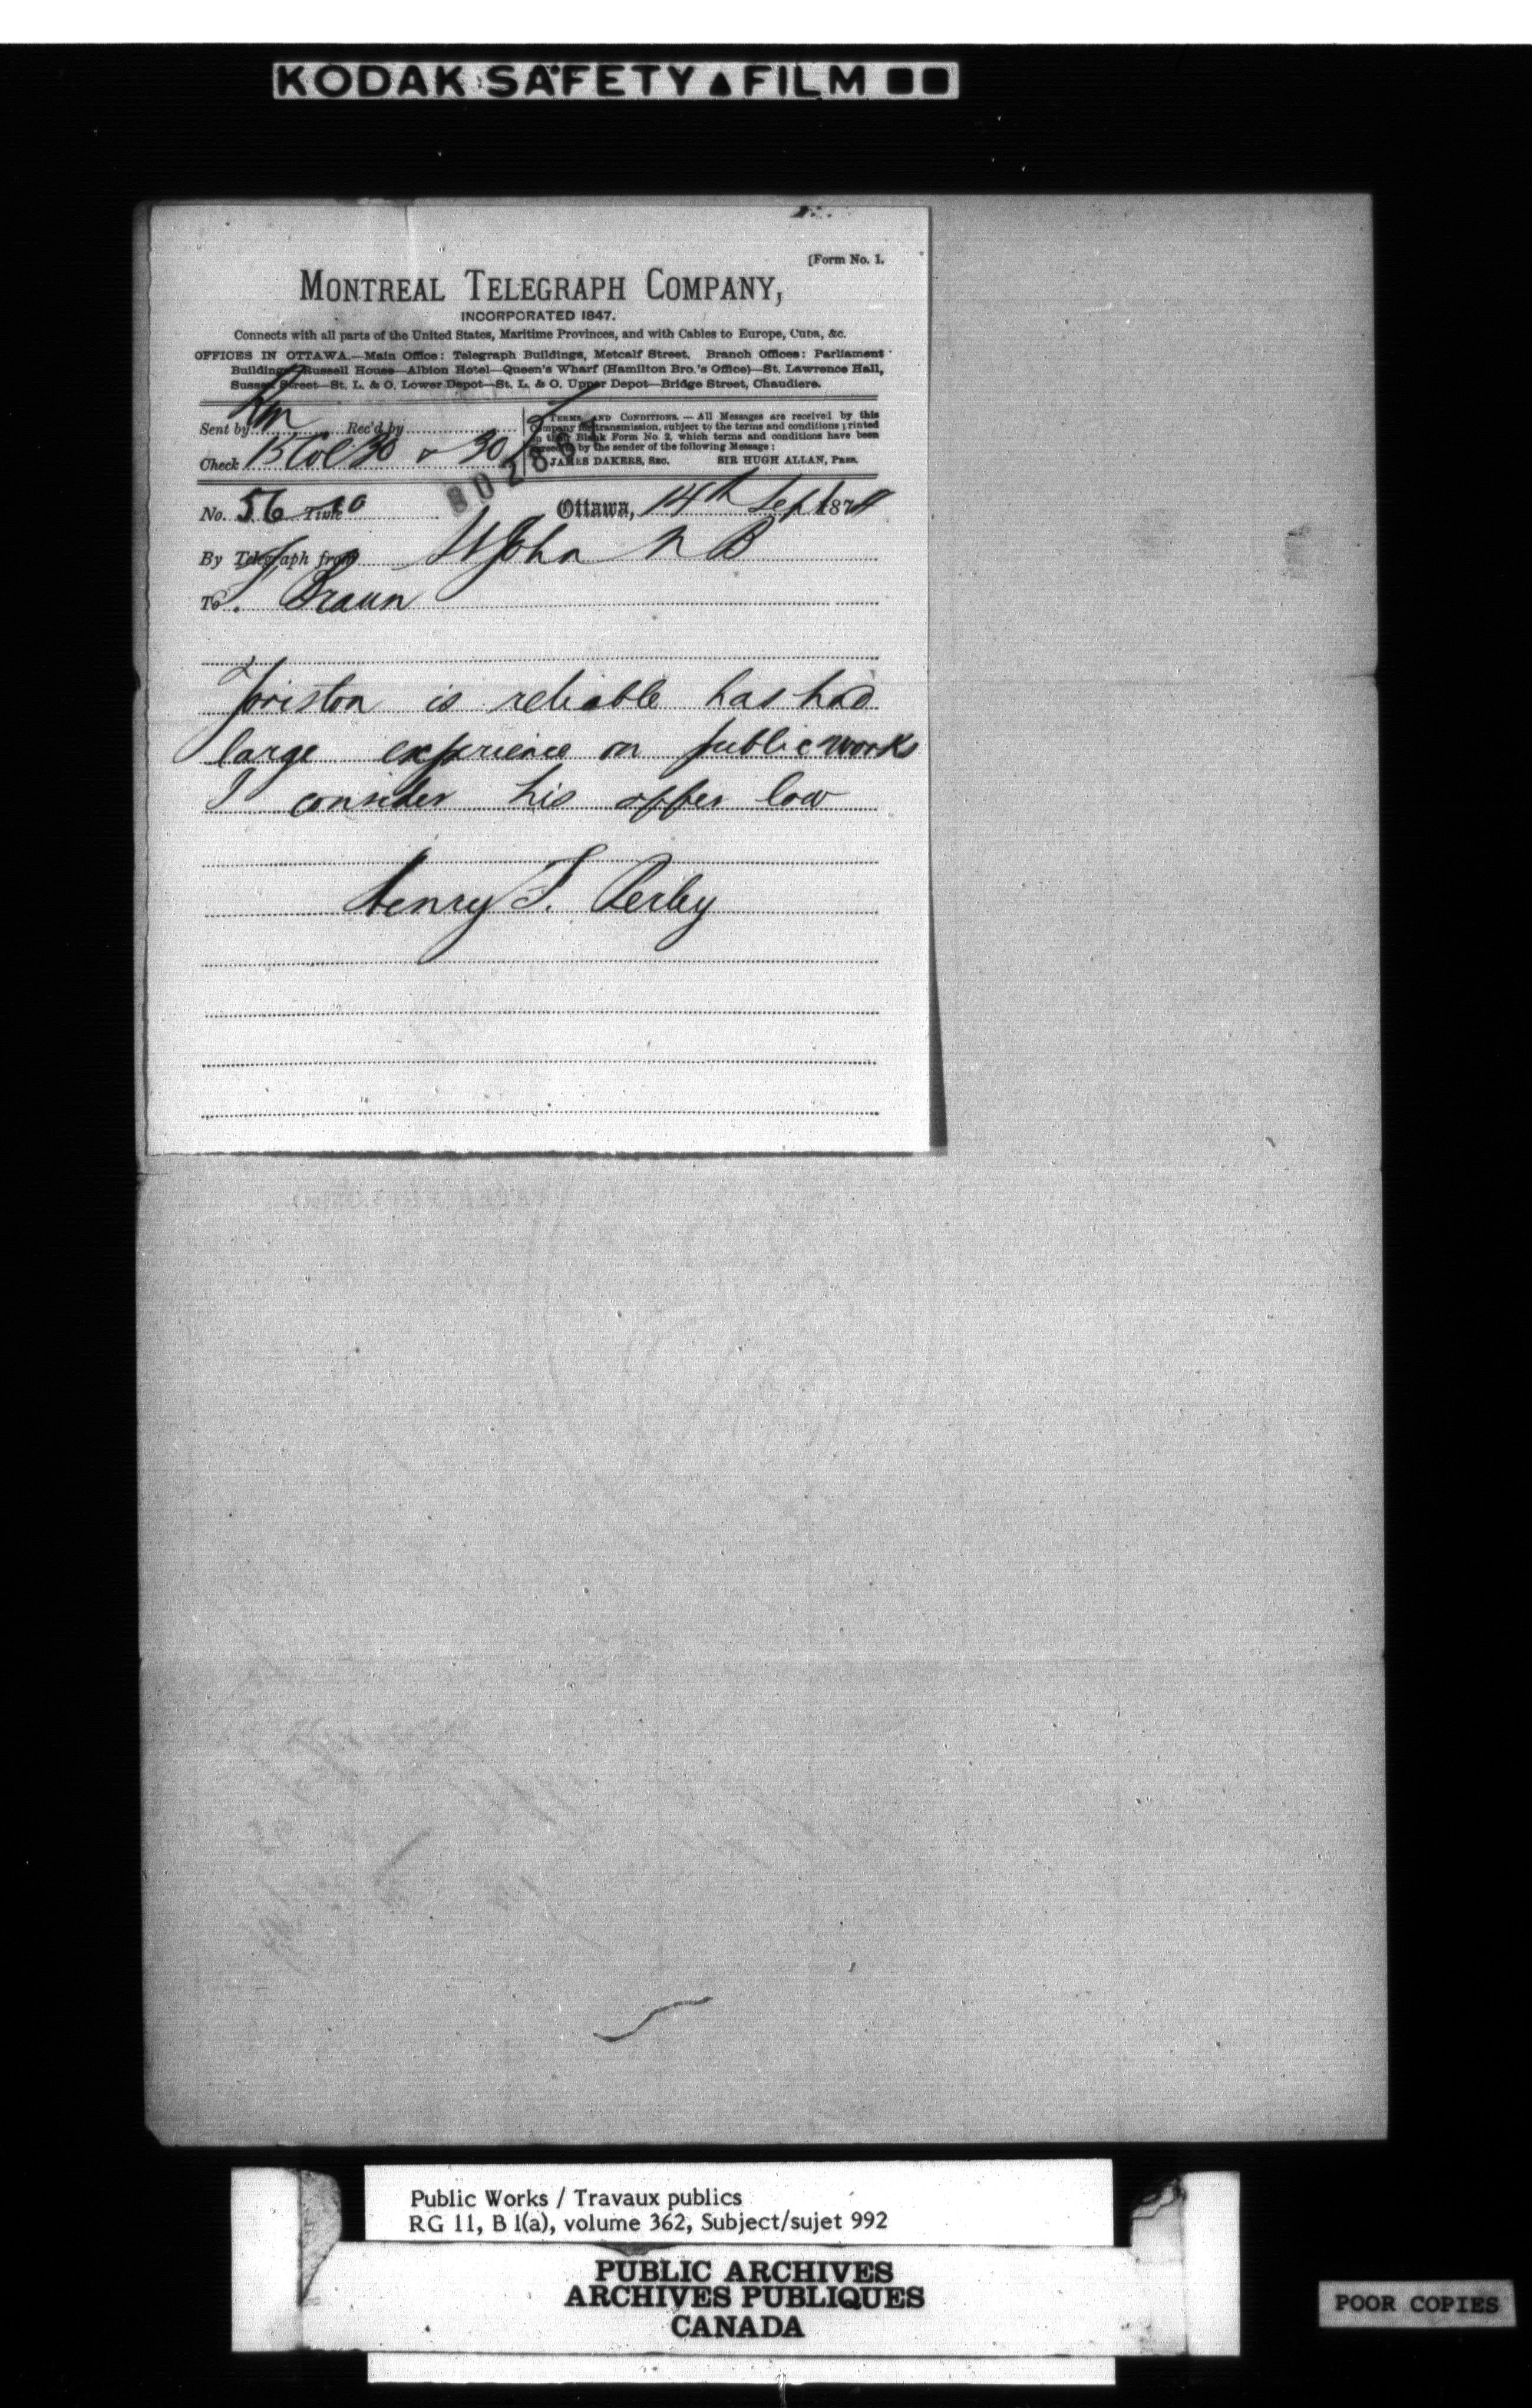 KODAK SAFETY FILM
[Form No. 1.
MONTREAL TELEGRAPH COMPANY,
INCORPORATED 1847.
Connects with all parts of the United States, Maritime Provinces, and with Cables to Europe, Cuba, &c.
OFFICES IN OTTAWA.—Main Office: Telegraph Buildings, Metcalf Street. Branch Offices: Parliament
Buildings—Russell House—Albion Hotel—Queen's Wharf (Hamilton Bro.'s Office)—St. Lawrence Hall,
Sussex Street—St. L. & O. Lower Depot—St. L. & O. Upper Depot—Bridge Street, Chaudiere.
Sent by Rec'd by
Check 30
TERMS AND CONDITIONS.—All Messages are received by this
Company for transmission, subject to the terms and conditions printed
on their Blank Form No. 2, which terms and conditions have been
agreed to by the sender of the following Message:
JAMES DAKERS, SEC. SIR HUGH ALLAN, PRES.
No. 56 Time
Ottawa, 14th Sept 187
By Telegraph from St John N B
To F. Braun
is reliable has had
large experience on public works
I consider his offer low
Henry F. Perley
Public Works / Travaux publics
RG 11, B 1(a), volume 362, Subject/sujet 992
PUBLIC ARCHIVES
ARCHIVES PUBLIQUES
CANADA
POOR COPIES